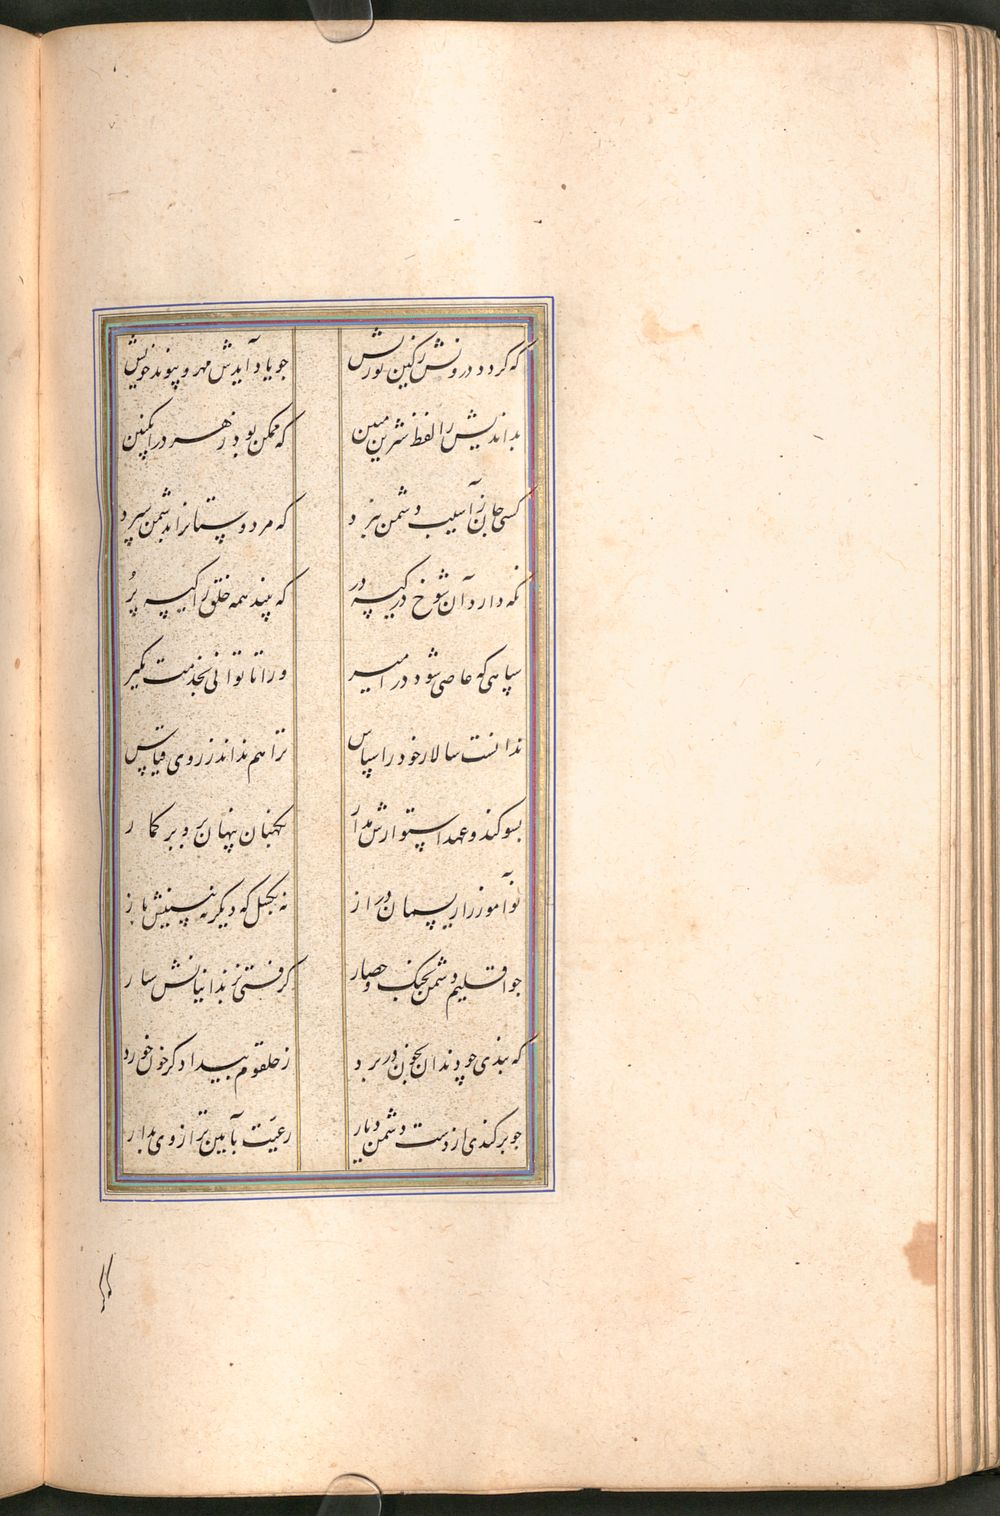 که گردد درونش ز کین تو ریش
چو یاد آیدش مهر و پیوند خویش
بداندیش را لفظ شیرین مبین
که ممکن بود زهر در انگبین
کسی جان ز آسیب دشمن نبرد
که مر دوستانرا بدشمن سپرد
نگه دارد آن شوخ در کیسه در
که بیند همه خلق را کیسه بر
سپاهی که عاصی شود در امیر
ورا تا توانی بخدمت مگیر
ندانست سالار خود را سپاس
ترا هم نداند ز روی قیاس
بسوگند و عهد استوارش مدار
نگهبان پنهان برو بر گمار
نوآموز را ریسمان دراز
نه بگسل که دیگر نبینیش باز
چو اقلیم دشمن بجنگ و حصار
گرفتی بزندانیانش سپار
که بندی چو دندان بخون در برد
ز حلقوم بیدادگر خون خورد
چو برکندی از دست دشمن دیار
رعیت بآیین ترا زوی بدار